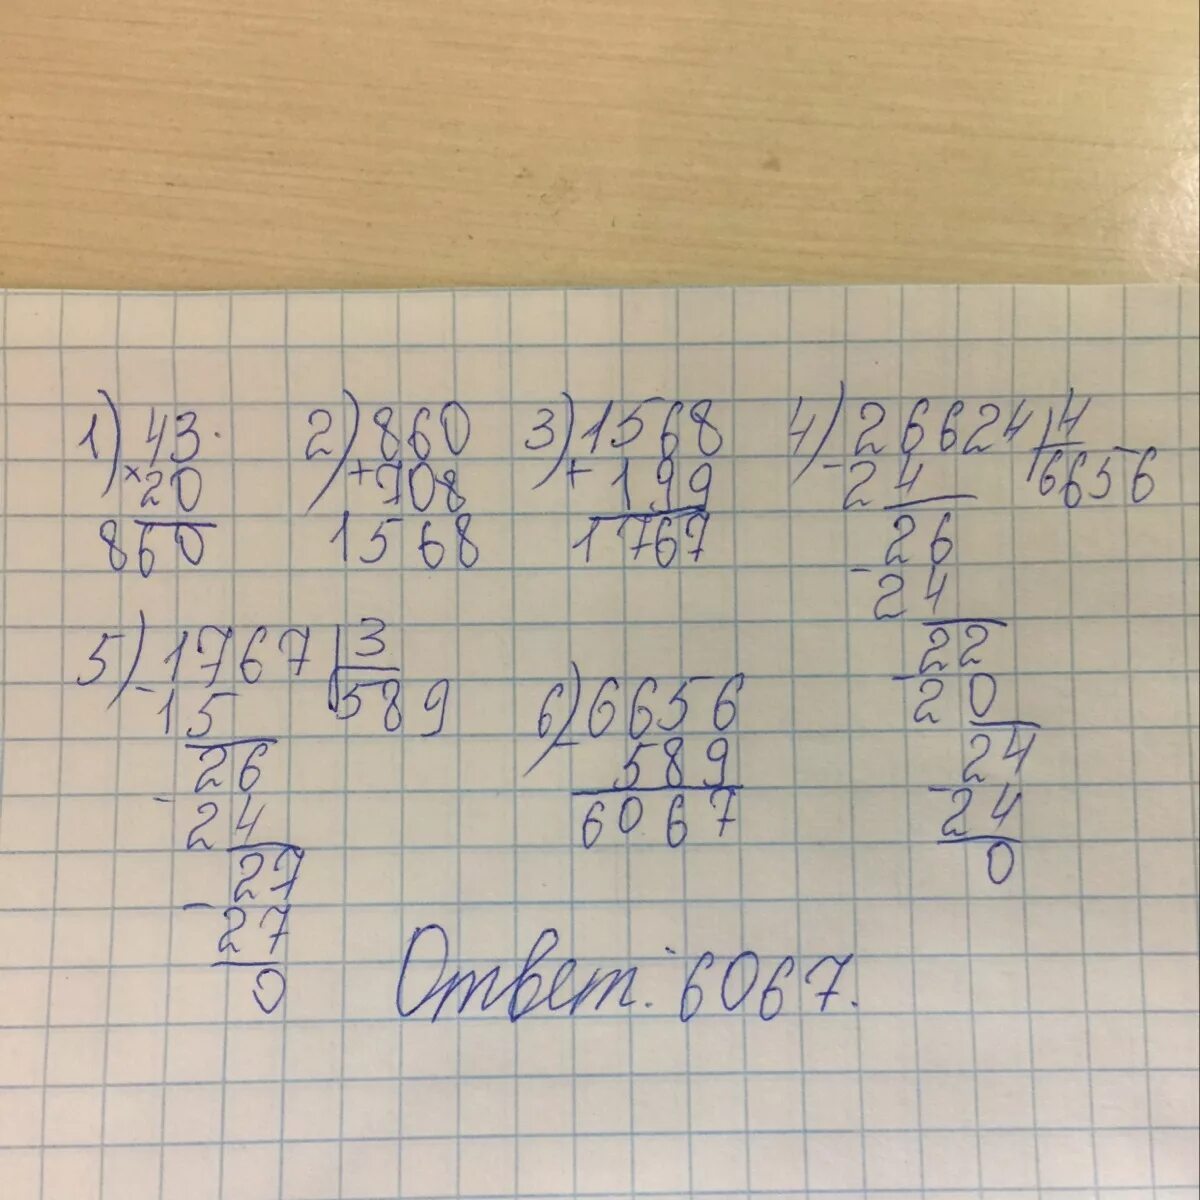 1) 43·
× 20
860
2) 860
+ 708
1568
3) 1568
+ 199
1767
4) 26624 | 4
- 24 6656
26
- 24
22
- 20
24
- 24
0
5) 1767 | 3
- 15 589
26
- 24
27
- 27
0
6) 6656
- 589
6067
Ответ: 6067.